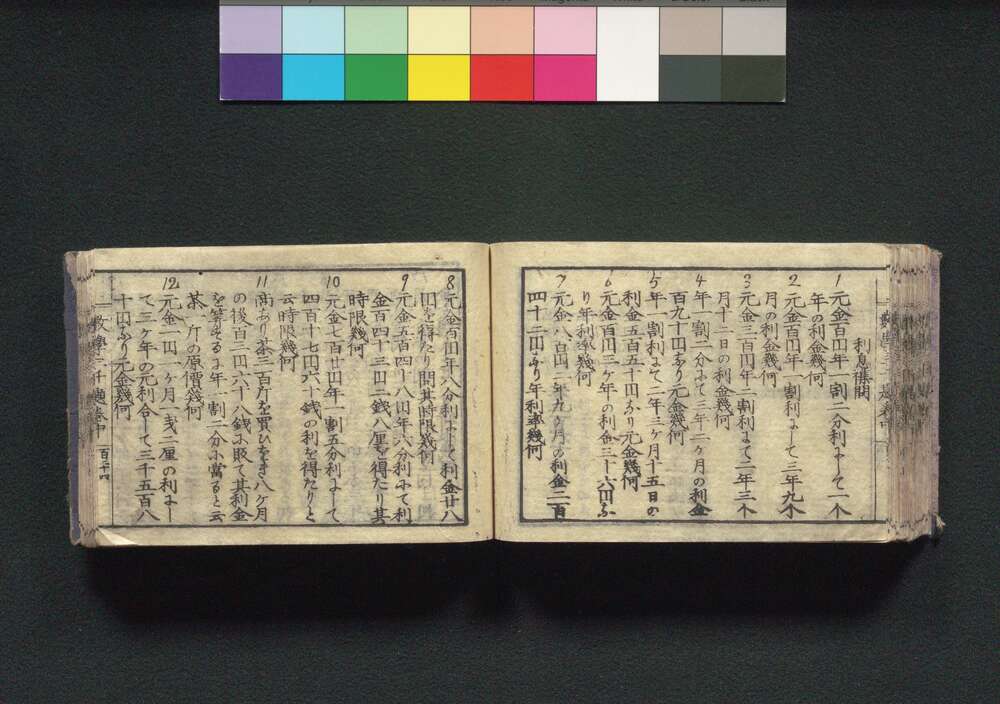 利息雑問
1 元金百円年一割二分利ニして一个
年の利金幾何
2 元金百円年一割利ニして三年九个
月の利金幾何
3 元金三百円年一割利にて二年三个
月十二日の利金幾何
4 年一割二分にて二年二ヶ月の利金
百九十円なり元金幾何
5 年一割利にて二年三ヶ月十五日の
利金五百五十円なり元金幾何
6 元金百円三ヶ年の利金三十六円な
り年利率幾何
7 元金八百円二年九ヶ月の利金二百
四十二円なり年利率幾何
8 元金百円年八分利にして利金廿八
円を得たり問其時限幾何
9 元金五百四十八円年六分利にて利
金百四十三円二銭八厘を得たり其
時限幾何
10 元金七百廿円年一割五分利にして
四百十七円六十銭の利を得たりと
云時限幾何
11 商あり茶三百斤を買ひをき八ヶ月
の後百二円六十八銭に販て其利金
を算するに年一割二分に當ると云
茶一斤の原價幾何
12 元金一円一ヶ月一銭二厘の利にし
て三ヶ年の元利合して三千五百八
十円なり元金幾何
数學三千題巻中
百二十四